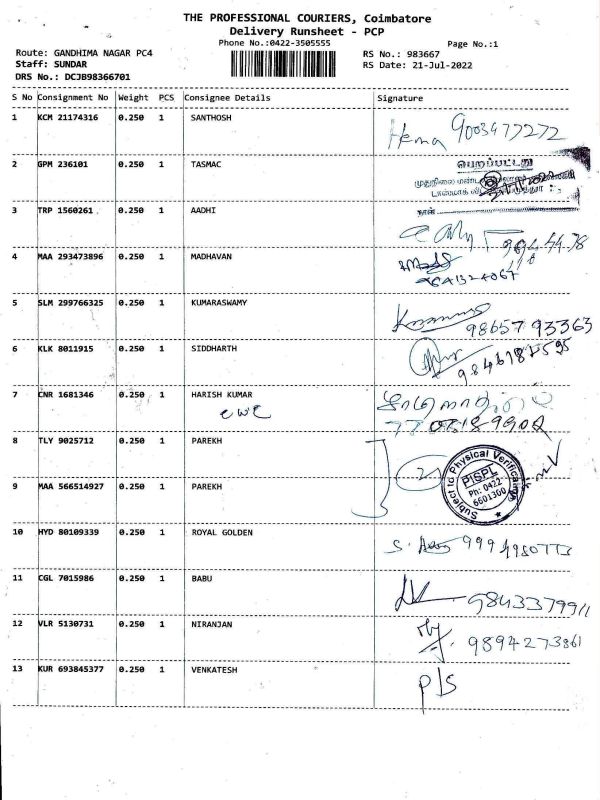 THE PROFESSIONAL COURIERS, Coimbatore
Delivery Runsheet - PCP
Phone No.:0422-3505555
Page No.:1
Route: GANDHIMA NAGAR PC4
RS No.: 983667
Staff: SUNDAR
RS Date: 21-Jul-2022
DRS No.: DCJB98366701
S No Consignment No Weight PCS Consignee Details Signature
1 KCM 21174316 0.250 1 SANTHOSH Hema 9003477272
2 GPM 236101 0.250 1 TASMAC
பெறப்பட்டது
நாள்
3 TRP 1560261 0.250 1 AADHI
4 MAA 293473896 0.250 1 MADHAVAN
5 SLM 299766325 0.250 1 KUMARASWAMY
98657 93363
6 KLK 8011915 0.250 1 SIDDHARTH
7 CNR 1681346 0.250 1 HARISH KUMAR
8 TLY 9025712 0.250 1 PAREKH
2
Subject to Physical Verification
PISPL
Ph: 0422-
6601300
9 MAA 566514927 0.250 1 PAREKH
10 HYD 80109339 0.250 1 ROYAL GOLDEN
11 CGL 7015986 0.250 1 BABU
9843379911
12 VLR 5130731 0.250 1 NIRANJAN
9894273861
13 KUR 693845377 0.250 1 VENKATESH P/S